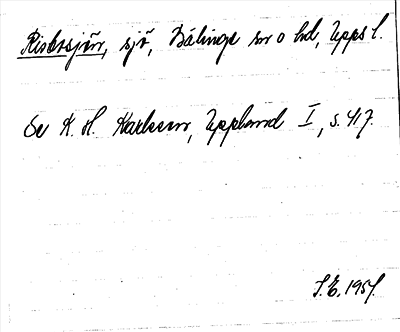 Ristersjön, sjö, Bälinge sn o hd, Upps l.
Se K. H. Karlsson, Uppland I, s. 417.
S.E. 1957.